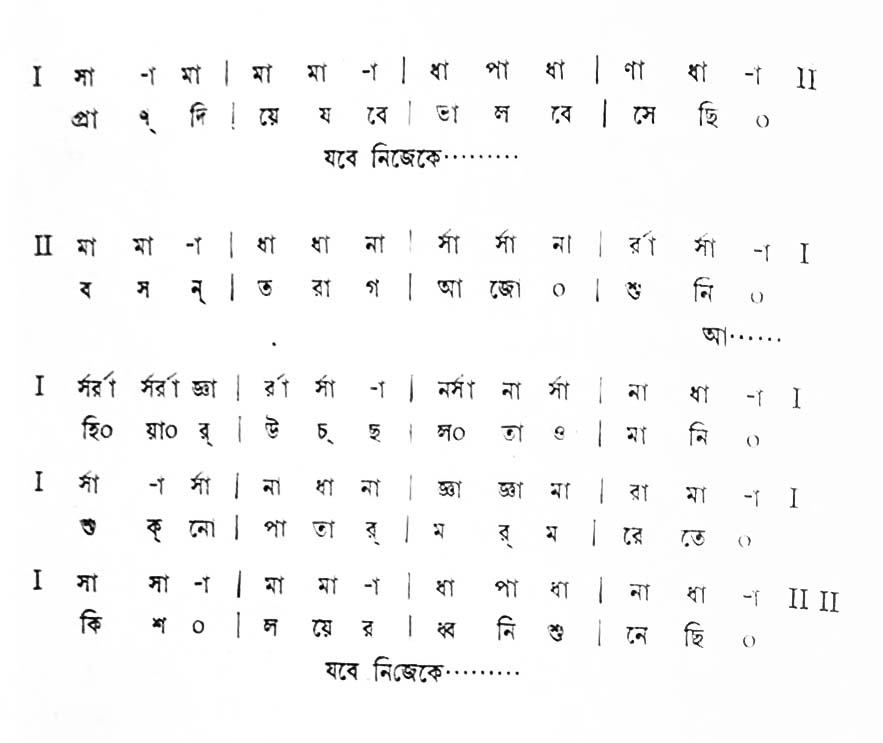 I সা -া মা | মা মা -া | ধা পা ধা | ণা ধা -া II
প্রা ণ্ দি | য়ে য বে | ভা ল বে | সে ছি ০
যবে নিজেকে·········
II মা মা -া | ধা ধা না | র্সা র্সা না | র্রা র্সা -া I
ব স ন্ | ত রা গ | আ জো ০ | শু নি ০
আ······
I র্সর্রা র্সর্রা জ্ঞা | র্রা র্সা -া | নর্সা না র্সা | না ধা -া I
হি০ য়া০ র্ | উ চ্ ছ | ল০ তা ও | মা নি ০
I র্সা -া র্সা | না ধা না | জ্ঞা জ্ঞা মা | রা মা -া I
শু ক্ নো | পা তা র্ | ম র্ ম | রে তে ০
I সা সা -া | মা মা -া | ধা পা ধা | না ধা -া II II
কি শ ০ | ল য়ে র | ধ্ব নি শু | নে ছি ০
যবে নিজেকে·········